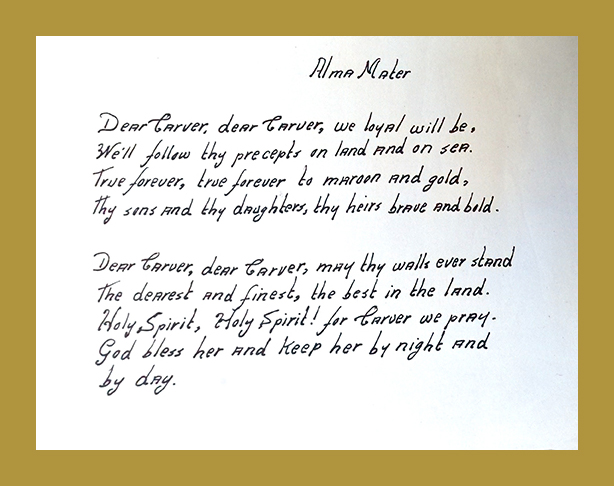 Alma Mater
Dear Carver, dear Carver, we loyal will be,
We'll follow thy precepts on land and on sea.
True forever, true forever to maroon and gold,
Thy sons and thy daughters, thy heirs brave and bold.
Dear Carver, dear Carver, may thy walls ever stand
The dearest and finest, the best in the land.
Holy Spirit, Holy Spirit! for Carver we pray.
God bless her and keep her by night and
by day.